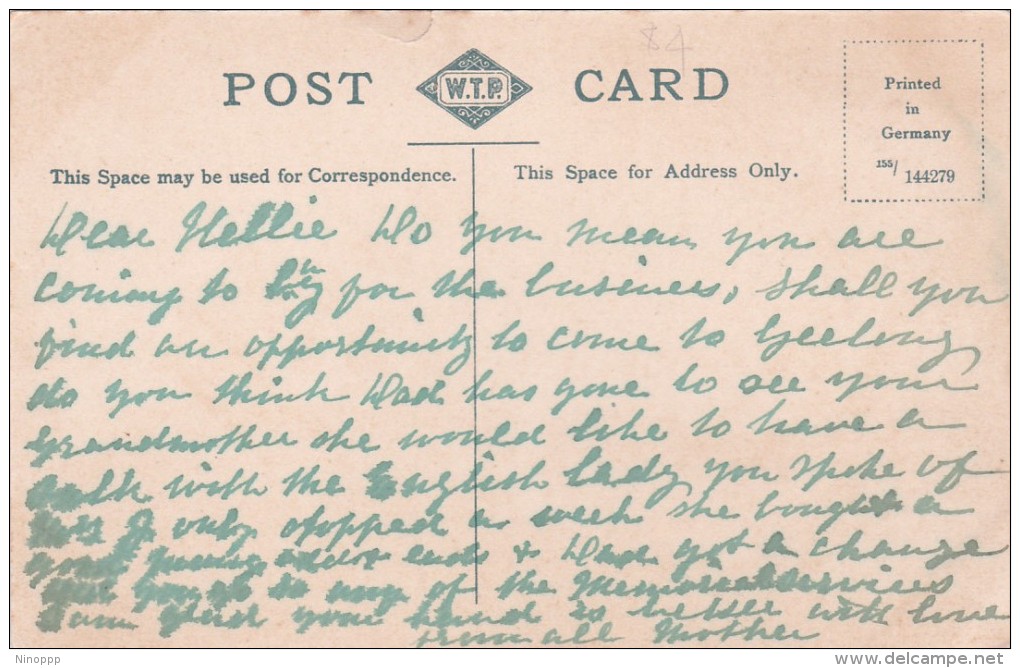 84
POST CARD
W.T.P.
Printed
in
Germany
155/ 144279
This Space may be used for Correspondence.
This Space for Address Only.
Dear Nellie Do you mean you are
coming to for the business, shall you
find an opportunity to come to Geelong
do you think Dad has gone to see your
Grandmother she would like to have a
talk with the English lady you spoke of
I only stopped a week she bought a
good many odds & ends & Dad got a change
did you go to any of the Memorial services
I am glad your hand is better with love
from all Mother
Ninoppp
delcampe.net